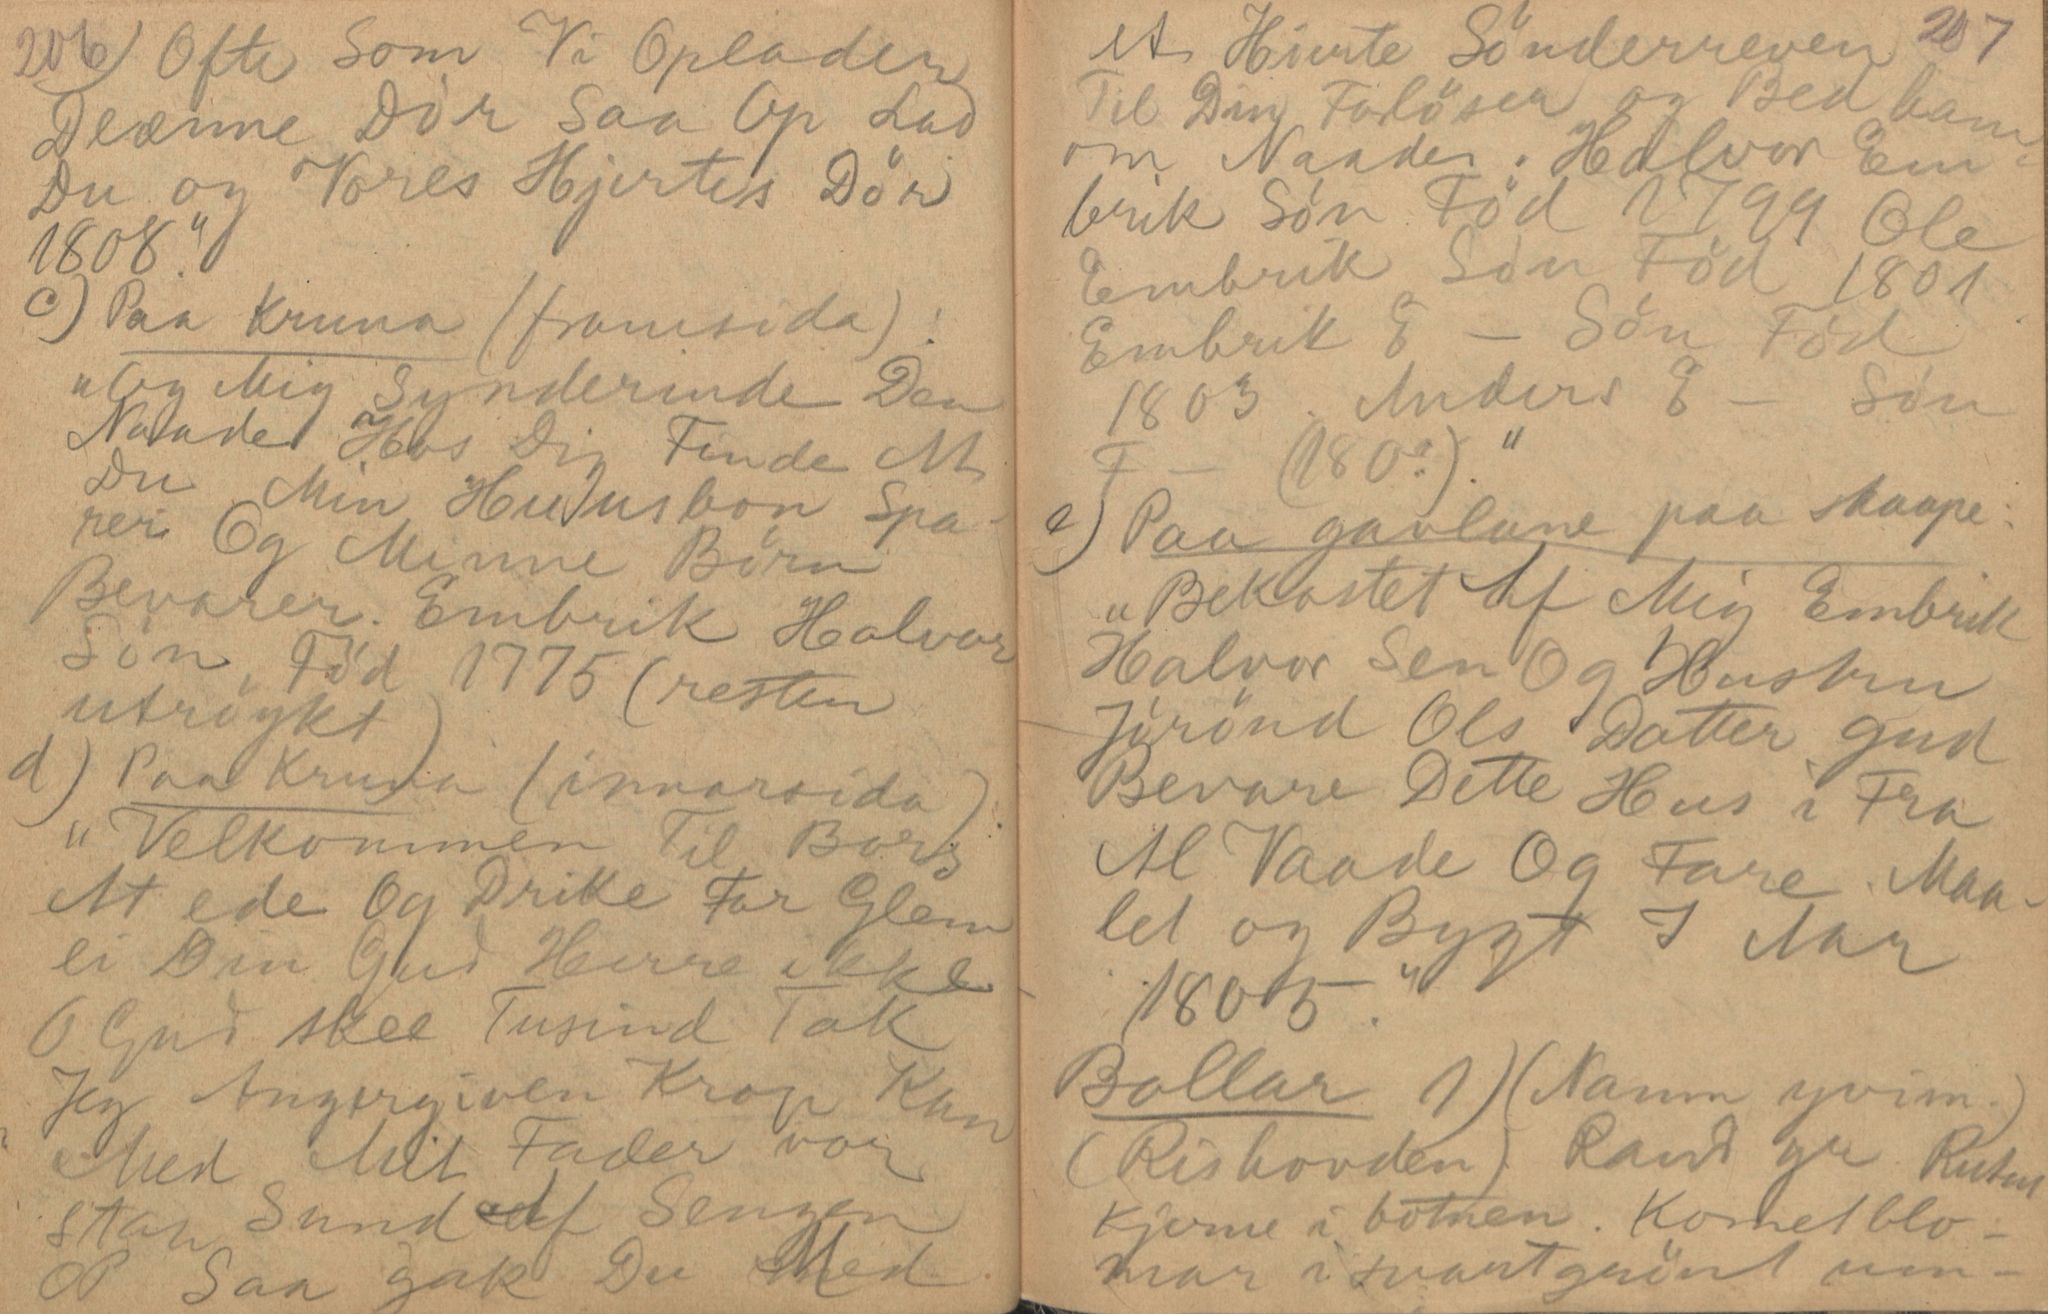 206) Ofte Som Vi Oplader
Deænne Dör Saa Op Lad
Du og Vores Hjertes Dör
1808."
c) Paa Kruna (framsida):
"Og Mig Synderinde Den
Naade Hos Dig Finde At
Du Min Huusbon Spa-
rer Og Minne Börn
Bevarer. Embrik Halvor
Sön, Föd 1775 (resten
utröykt)
d) Paa Kruna (innarsida):
"Velkommen Til Bors
At ede Og Drike For Glem
ei Din Gud Herre ikke
O Gud skee Tusind Tak
Jeg Angergiven Krop Kan
Med Mit Fader vor
stan Sund af Sengen
OP Saa gak Du Med
207
et Hierte Sönderreven
Til Din Forlöser og Bed ham
om Naade. Halvor Em-
brik Sön Föd 1799 Ole
Embrik Sön Föd 1801
Embrik E — Sön Föd
1803. Anders E — Sön
F — (180?)."
e) Paa gavlane paa skaape:
"Bekostet Af Mig Embrik
Halvor Sen Og Hustru
Jörönd Ols Datter gud
Bevare Dette Hus i Fra
Al Vaade Og Fare. Maa-
let og Bygt I Aar
1805."
Bollar 1) (Namn yvim.)
(Rishovden). Rand yr
kjerne i botnen. Kornelblo-
mar i svartgrönt um-